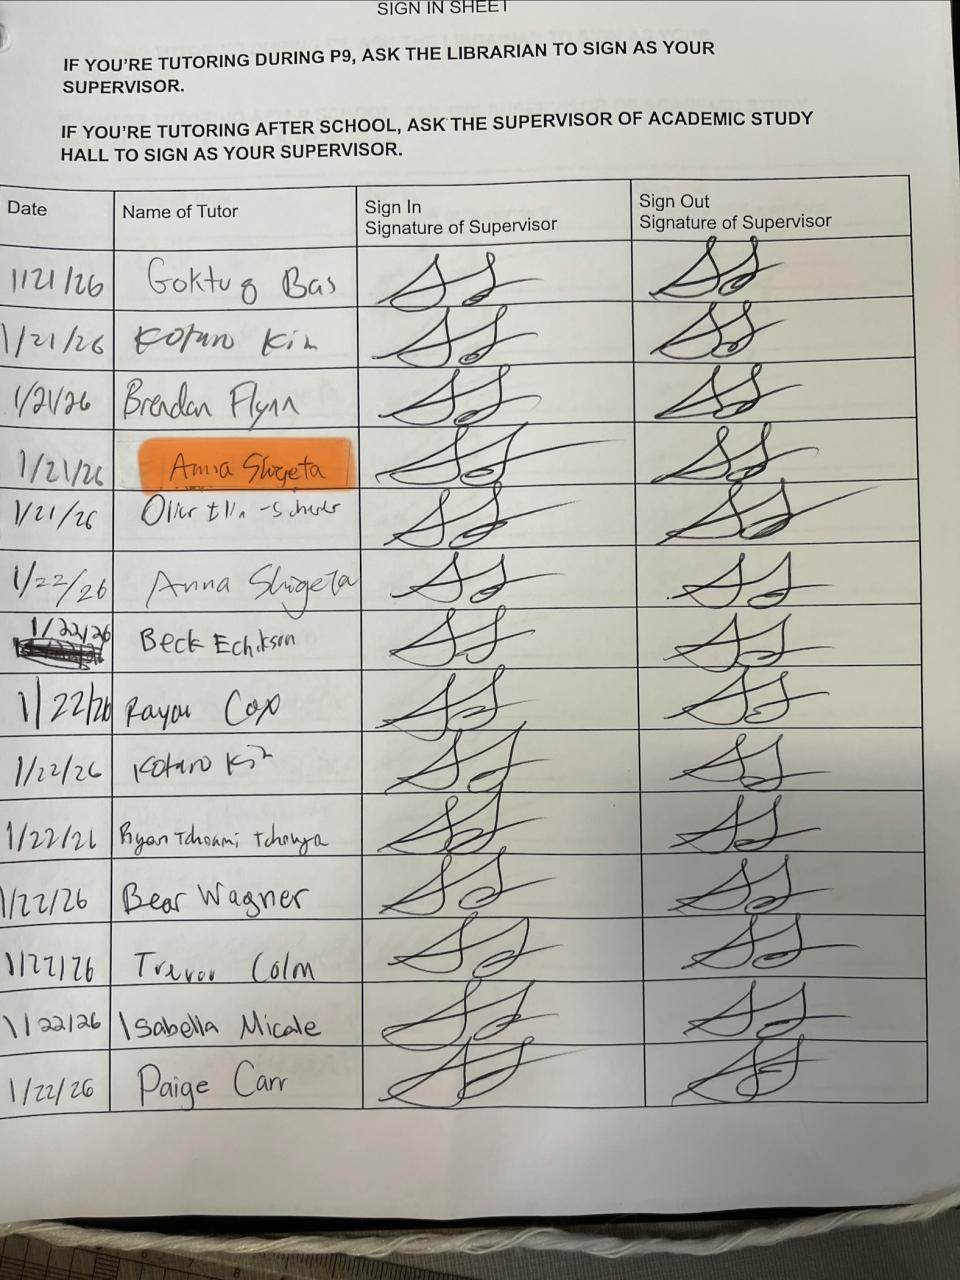 SIGN IN SHEET
IF YOU'RE TUTORING DURING P9, ASK THE LIBRARIAN TO SIGN AS YOUR
SUPERVISOR.
IF YOU'RE TUTORING AFTER SCHOOL, ASK THE SUPERVISOR OF ACADEMIC STUDY
HALL TO SIGN AS YOUR SUPERVISOR.
Date Name of Tutor Sign In Signature of Supervisor Sign Out Signature of Supervisor
1/21/26 Goktug Bas
1/21/26 Kotaro Kim
1/21/26 Brendan Flynn
1/21/26 Anna Shigeta
1/21/26
1/22/26 Anna Shigeta
1/22/26 Beck Echikson
1/22/26 Cox
1/22/26 Kotaro Kim
1/22/26 Ryan Tchouya
1/22/26 Bear Wagner
1/22/26 Trevor Colm
1/22/26 Isabella Micale
1/22/26 Paige Carr